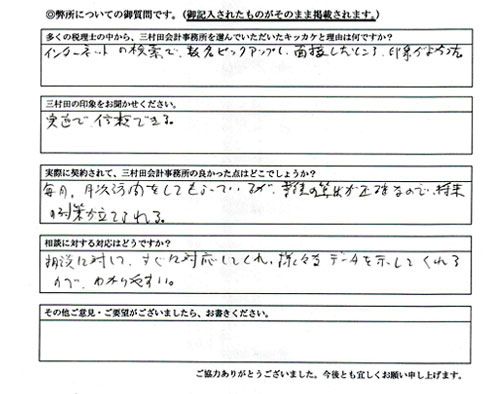 ◎弊所についての御質問です。(御記入されたものがそのまま掲載されます。)
多くの税理士の中から、三村田会計事務所を選んでいただいたキッカケと理由は何ですか?
インターネットの検索で、数名ピックアップし、面接したところ、印象がよかった
三村田の印象をお聞かせください。
実直で、信頼できる。
実際に契約されて、三村田会計事務所の良かった点はどこでしょうか?
毎月、月次訪問をしてもらっているが、業績の算出が正確なので、将来
の対策が立てられる。
相談に対する対応はどうですか?
相談に対して、すぐに対応してくれ、様々なデータを示してくれる
ので、わかりやすい。
その他ご意見・ご要望がございましたら、お書きください。
ご協力ありがとうございました。今後とも宜しくお願い申し上げます。